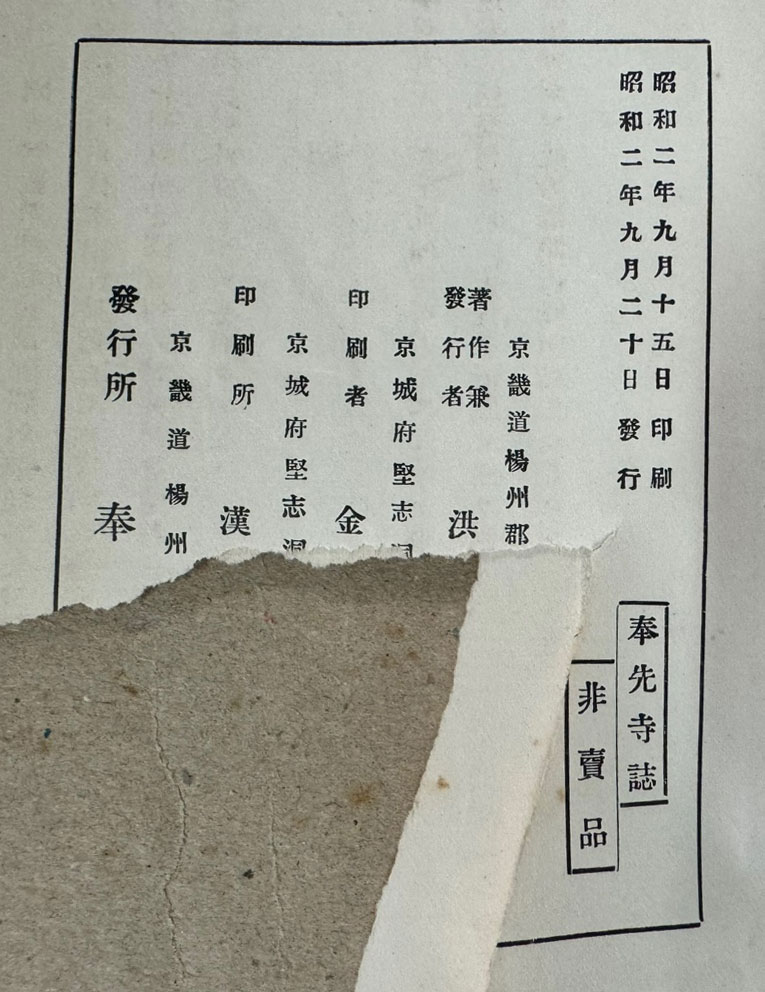 昭和二年九月十五日印刷
昭和二年九月二十日發行
奉先寺誌
非賣品
京畿道楊州郡
著作兼
發行者 洪
京城府堅志洞
印刷者 金
京城府堅志洞
印刷所 漢
京畿道楊州
發行所 奉